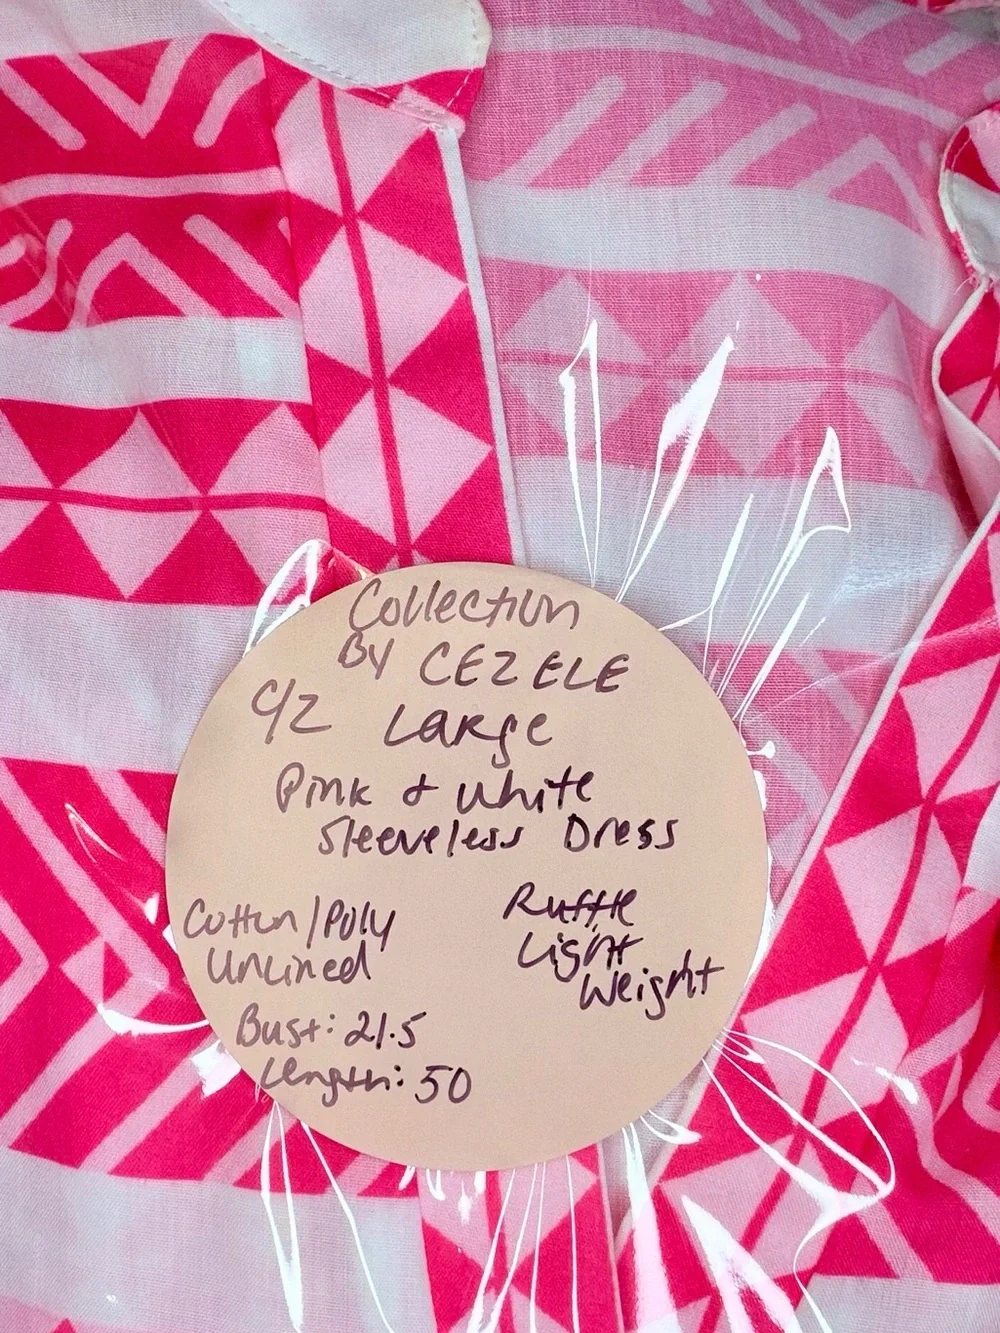 Collection
By CEZELE
C/Z Large
Pink & White
Sleeveless Dress
Cotton/Poly
Unlined
Ruffle
Light
Weight
Bust: 21.5
Length: 50